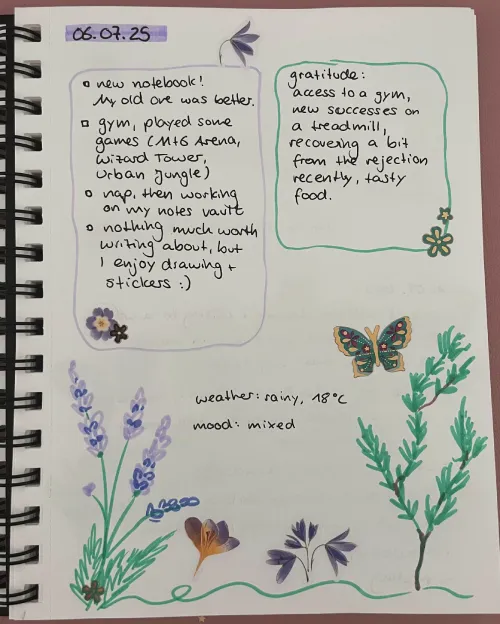 06.07.25
new notebook!
My old one was better.
gym, played some
games (MtG Arena,
Wizard Tower,
Urban Jungle)
nap, then working
on my notes vault
nothing much worth
writing about, but
I enjoy drawing +
stickers :)
gratitude:
access to a gym,
new successes on
a treadmill,
recovering a bit
from the rejection
recently, tasty
food.
weather: rainy, 18°C
mood: mixed